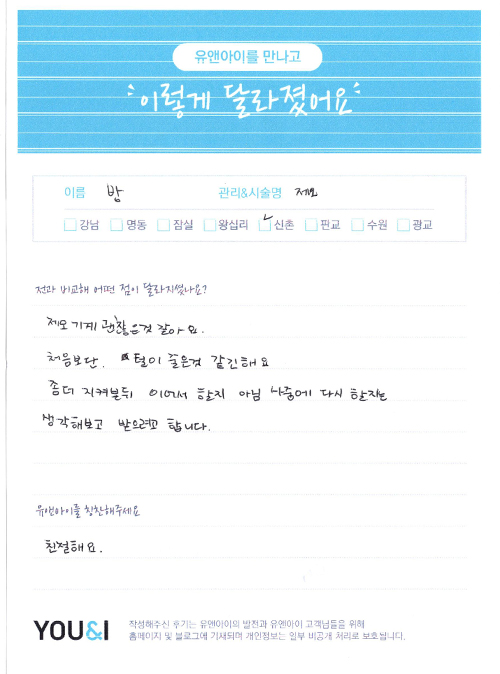 유앤아이를 만나고
이렇게 달라졌어요
이름 방 관리&시술명 제모
강남 명동 잠실 왕십리 신촌 판교 수원 광교
전과 비교해 어떤 점이 달라지셨나요?
제모 기계 괜찮은것 같아요.
처음보단. 털이 줄은것 같긴해요
좀더 지켜본뒤 이어서 할지 아님 나중에 다시 할지는
생각해보고 받으려고 합니다.
유앤아이를 칭찬해주세요
친절해요.
YOU&I
작성해주신 후기는 유앤아이의 발전과 유앤아이 고객님들을 위해
홈페이지 및 블로그에 기재되며 개인정보는 일부 비공개 처리로 보호됩니다.